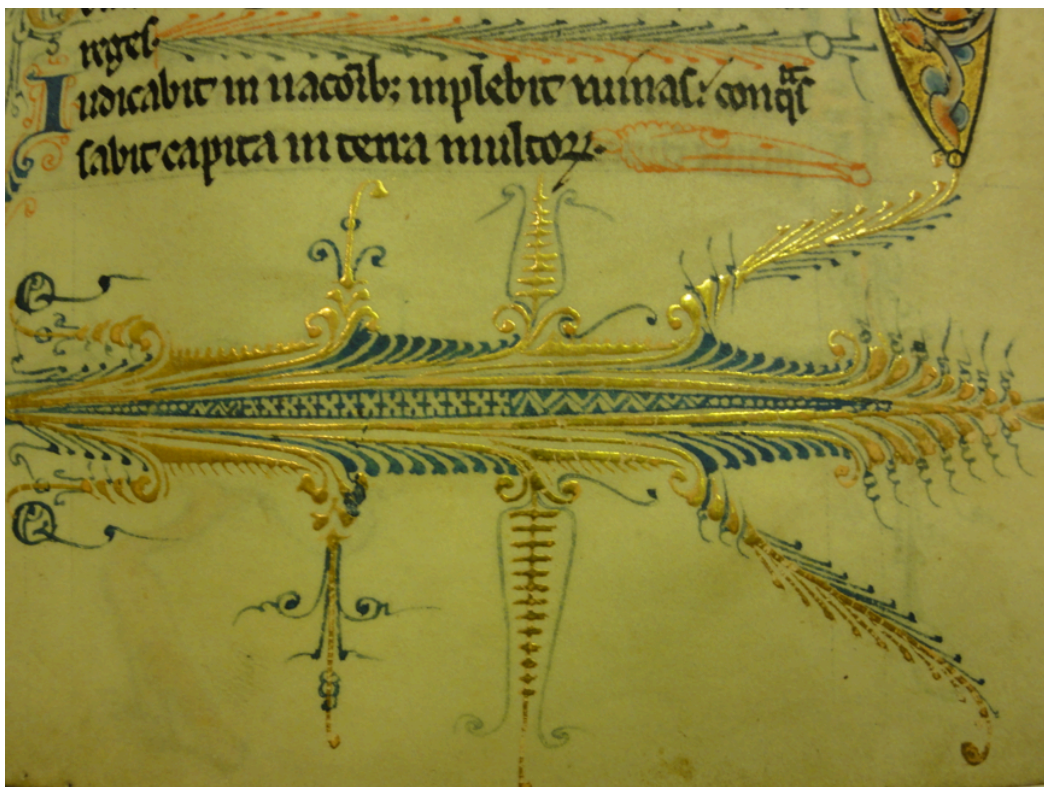 reges.
Iudicabit in nacōib; inplebit ruinas: conq̄s
sabit capita in terra multoꝝ.